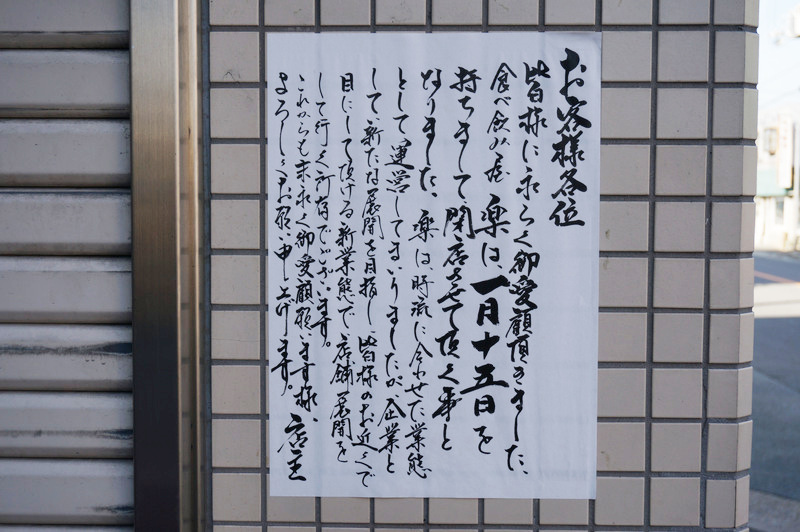 お客様各位
皆様に永らく御愛顧頂きました、
食べ飲み屋 楽は一月十五日を
持ちまして、閉店させて頂く事と
なりました、楽は時流に合わせた業態
として、運営してまいりましたが、企業と
して、新たな展開を目指し、皆様のお近くで
目にして頂ける新業態で、店舗展開を
して行く所存でございます。
これからも末永く御愛顧願います様、
よろしくお願い申し上げます。
店主